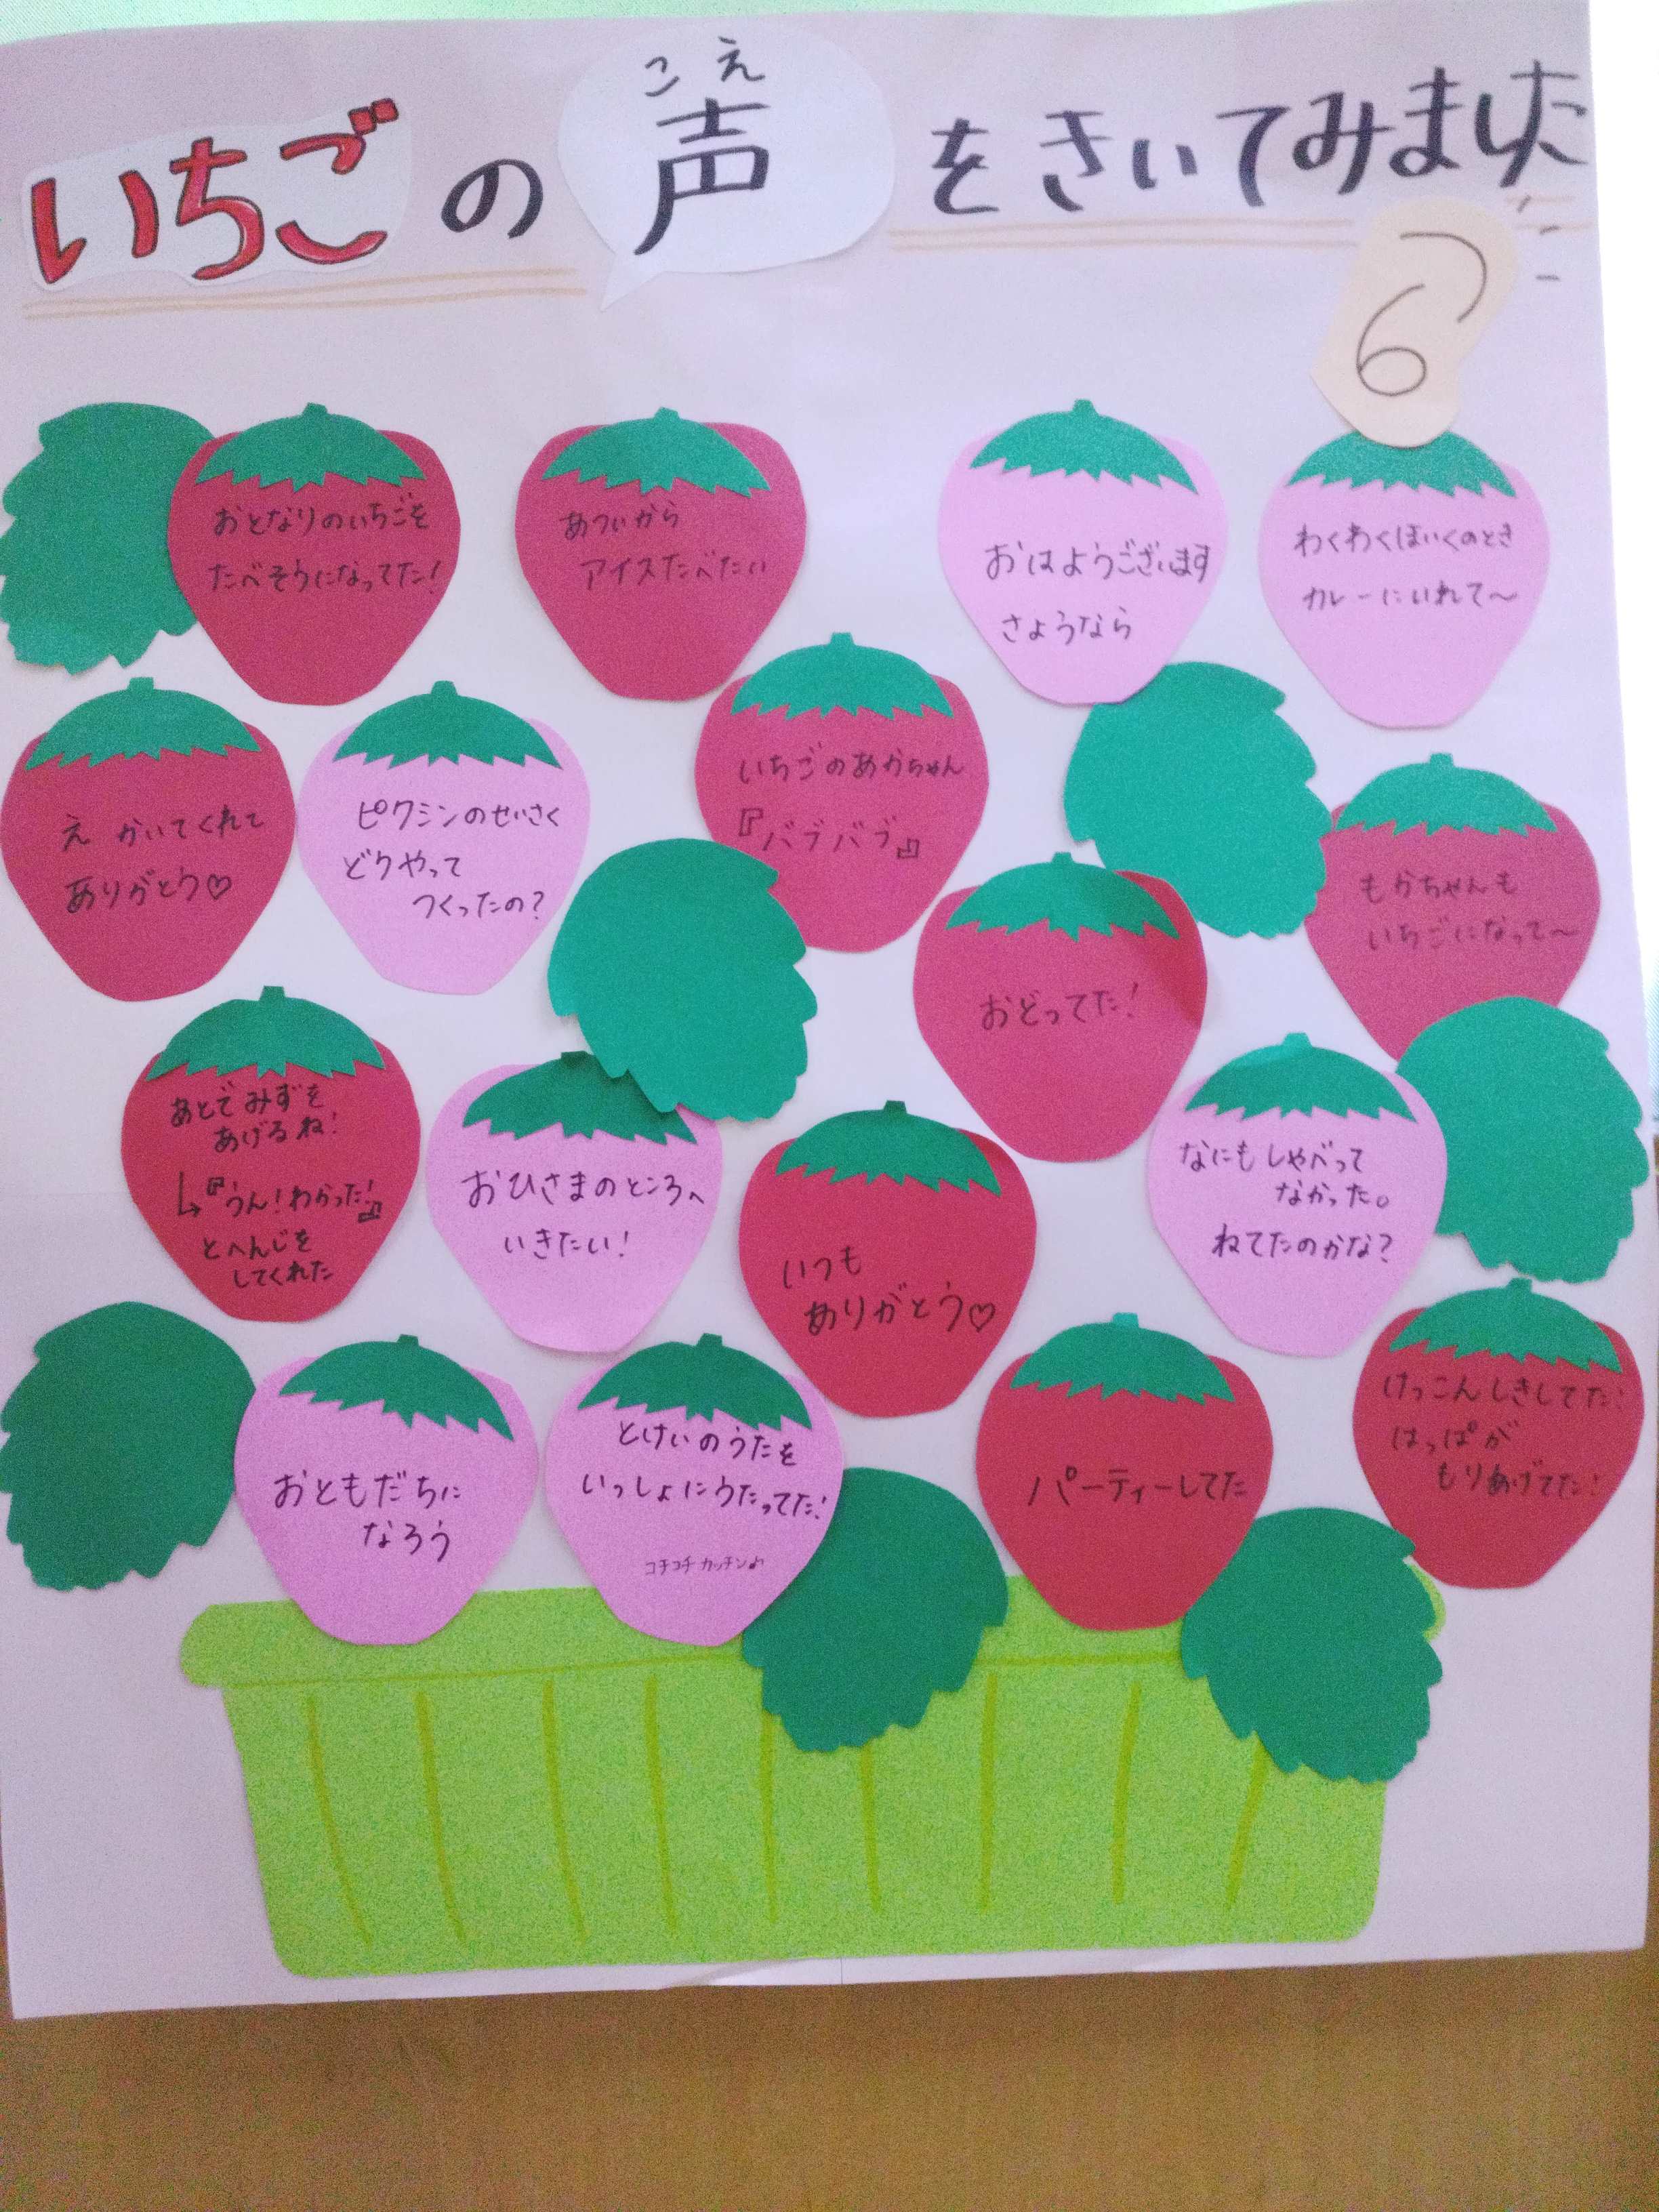 こえ
いちごの声をきいてみました
おとなりのいちごを
たべそうになってた!
あついから
アイスたべたい
おはようございます
さようなら
わくわくほいくのとき
カレーにいれて〜
え かいてくれて
ありがとう♡
ピクミンのせいさく
どうやって
つくったの?
いちごのあかちゃん
『バブバブ』
もかちゃんも
いちごになって〜
おどってた!
あとでみずを
あげるね!
↳『うん!わかった!』
とへんじを
してくれた
おひさまのところへ
いきたい!
いつも
ありがとう♡
なにもしゃべって
なかった。
ねてたのかな?
おともだちに
なろう
とけいのうたを
いっしょにうたってた!
コチコチカッチン♪
パーティーしてた
けっこんしきしてた!
はっぱが
もりあげてた!